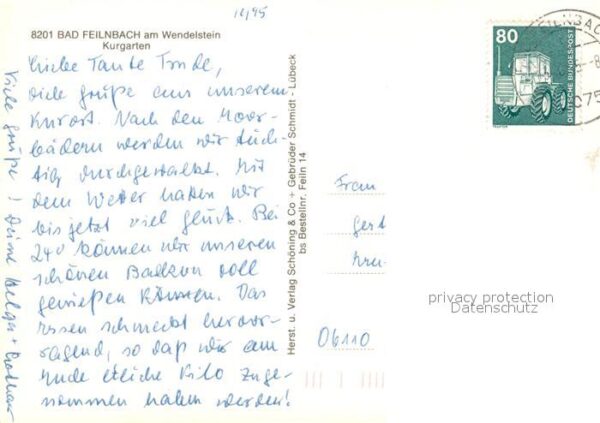 12/95
8201 BAD FEILNBACH am Wendelstein
Kurgarten
Liebe Tante Trude,
viele Grüße aus unserem
Kurort. Nach den Moor-
bädern werden wir tüch-
tig durchgewalkt. Mit
dem Wetter hatten wir
bis jetzt viel Glück. Bei
24° können wir unseren
schönen Balkon voll
genießen können. Das
Essen schmeckt hervor-
ragend, so daß wir am
Ende etliche Kilo zuge-
nommen haben werden!
Viele Grüße! Deine Helga +
Herst. u. Verlag Schöning & Co + Gebrüder Schmidt - Lübeck
bs Bestellnr. Feiln 14
80
DEUTSCHE BUNDESPOST
TRAKTOR
FEILNBACH
075
Frau
Gert
06110
privacy protection
Datenschutz